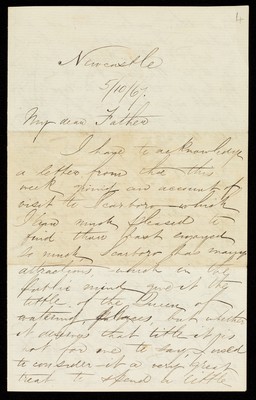 4
Newcastle
5/10/67.
My dear Father
I have to acknowledge
a letter from this
week giving an account of
visit to Scarboro which
I am much pleased to
find thou hast enjoyed
so much, Scarboro has many
attractions, which in the
public mind give it the
title of the Queen of
watering places, but whether
it deserves that title it is
not for me to say, I used
to consider it a very great
treat to spend a little